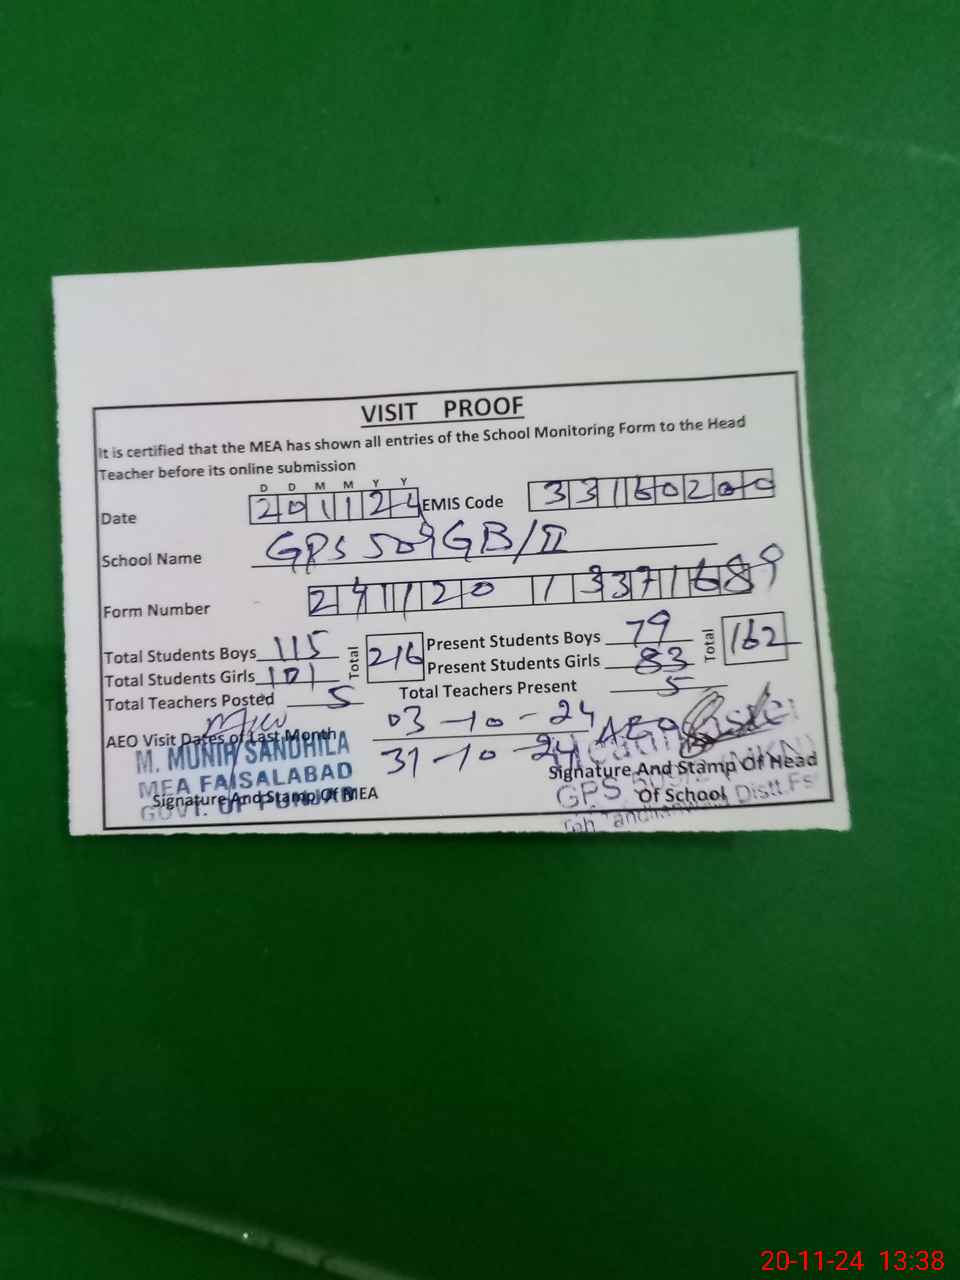 VISIT PROOF
It is certified that the MEA has shown all entries of the School Monitoring Form to the Head
Teacher before its online submission
D D M M Y Y
Date 201124 EMIS Code 33160200
School Name GPS 509 GB/II
Form Number 241120 1 3371689
Total Students Boys 115 Total 216 Present Students Boys 79 Total 162
Total Students Girls 101 Present Students Girls 83
Total Teachers Posted 5 Total Teachers Present 5
AEO Visit Dates of Last Month 03-10-24 AEO
31-10-24
M. MUNIR SANDHILA
MEA FAISALABAD
GOVT. OF PUNJAB
Signature And Stamp Of MEA
Signature And Stamp Of Head
Of School
GPS
Distt.
20-11-24 13:38